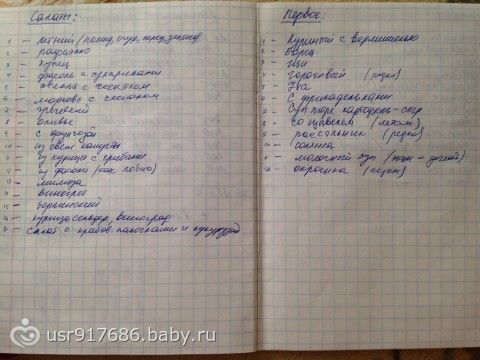 Салаты:
1 - летний (помид, огур, перец, зелень)
2 - рафаэлло
3 - купец
4 - фасоль с сухариками
5 - свекла с чесноком
6 - морковь с чесноком
7 - греческий
8 - оливье
9 - с фунчозой
10 - из свеж капусты
11 - из курицы с грибами
12 - из фасоли (как лобио)
13 - мимоза
14 - винегрет
15 - берлинский
16 - курица, сельдер, виноград
17 - салат с крабов. палочками и кукурузой
Первое:
1 - Куриный с вермишелью
2 - Борщ
3 - Щи
4 - Гороховый (редко)
5 - Уха
6 - С фрикадельками
7 - Суп пюре картофель-сыр
8 - со щавелем (летом)
9 - рассольник (редко)
10 - солянка
11 - молочный суп
12 - окрошка (сезон)
usr917686.baby.ru